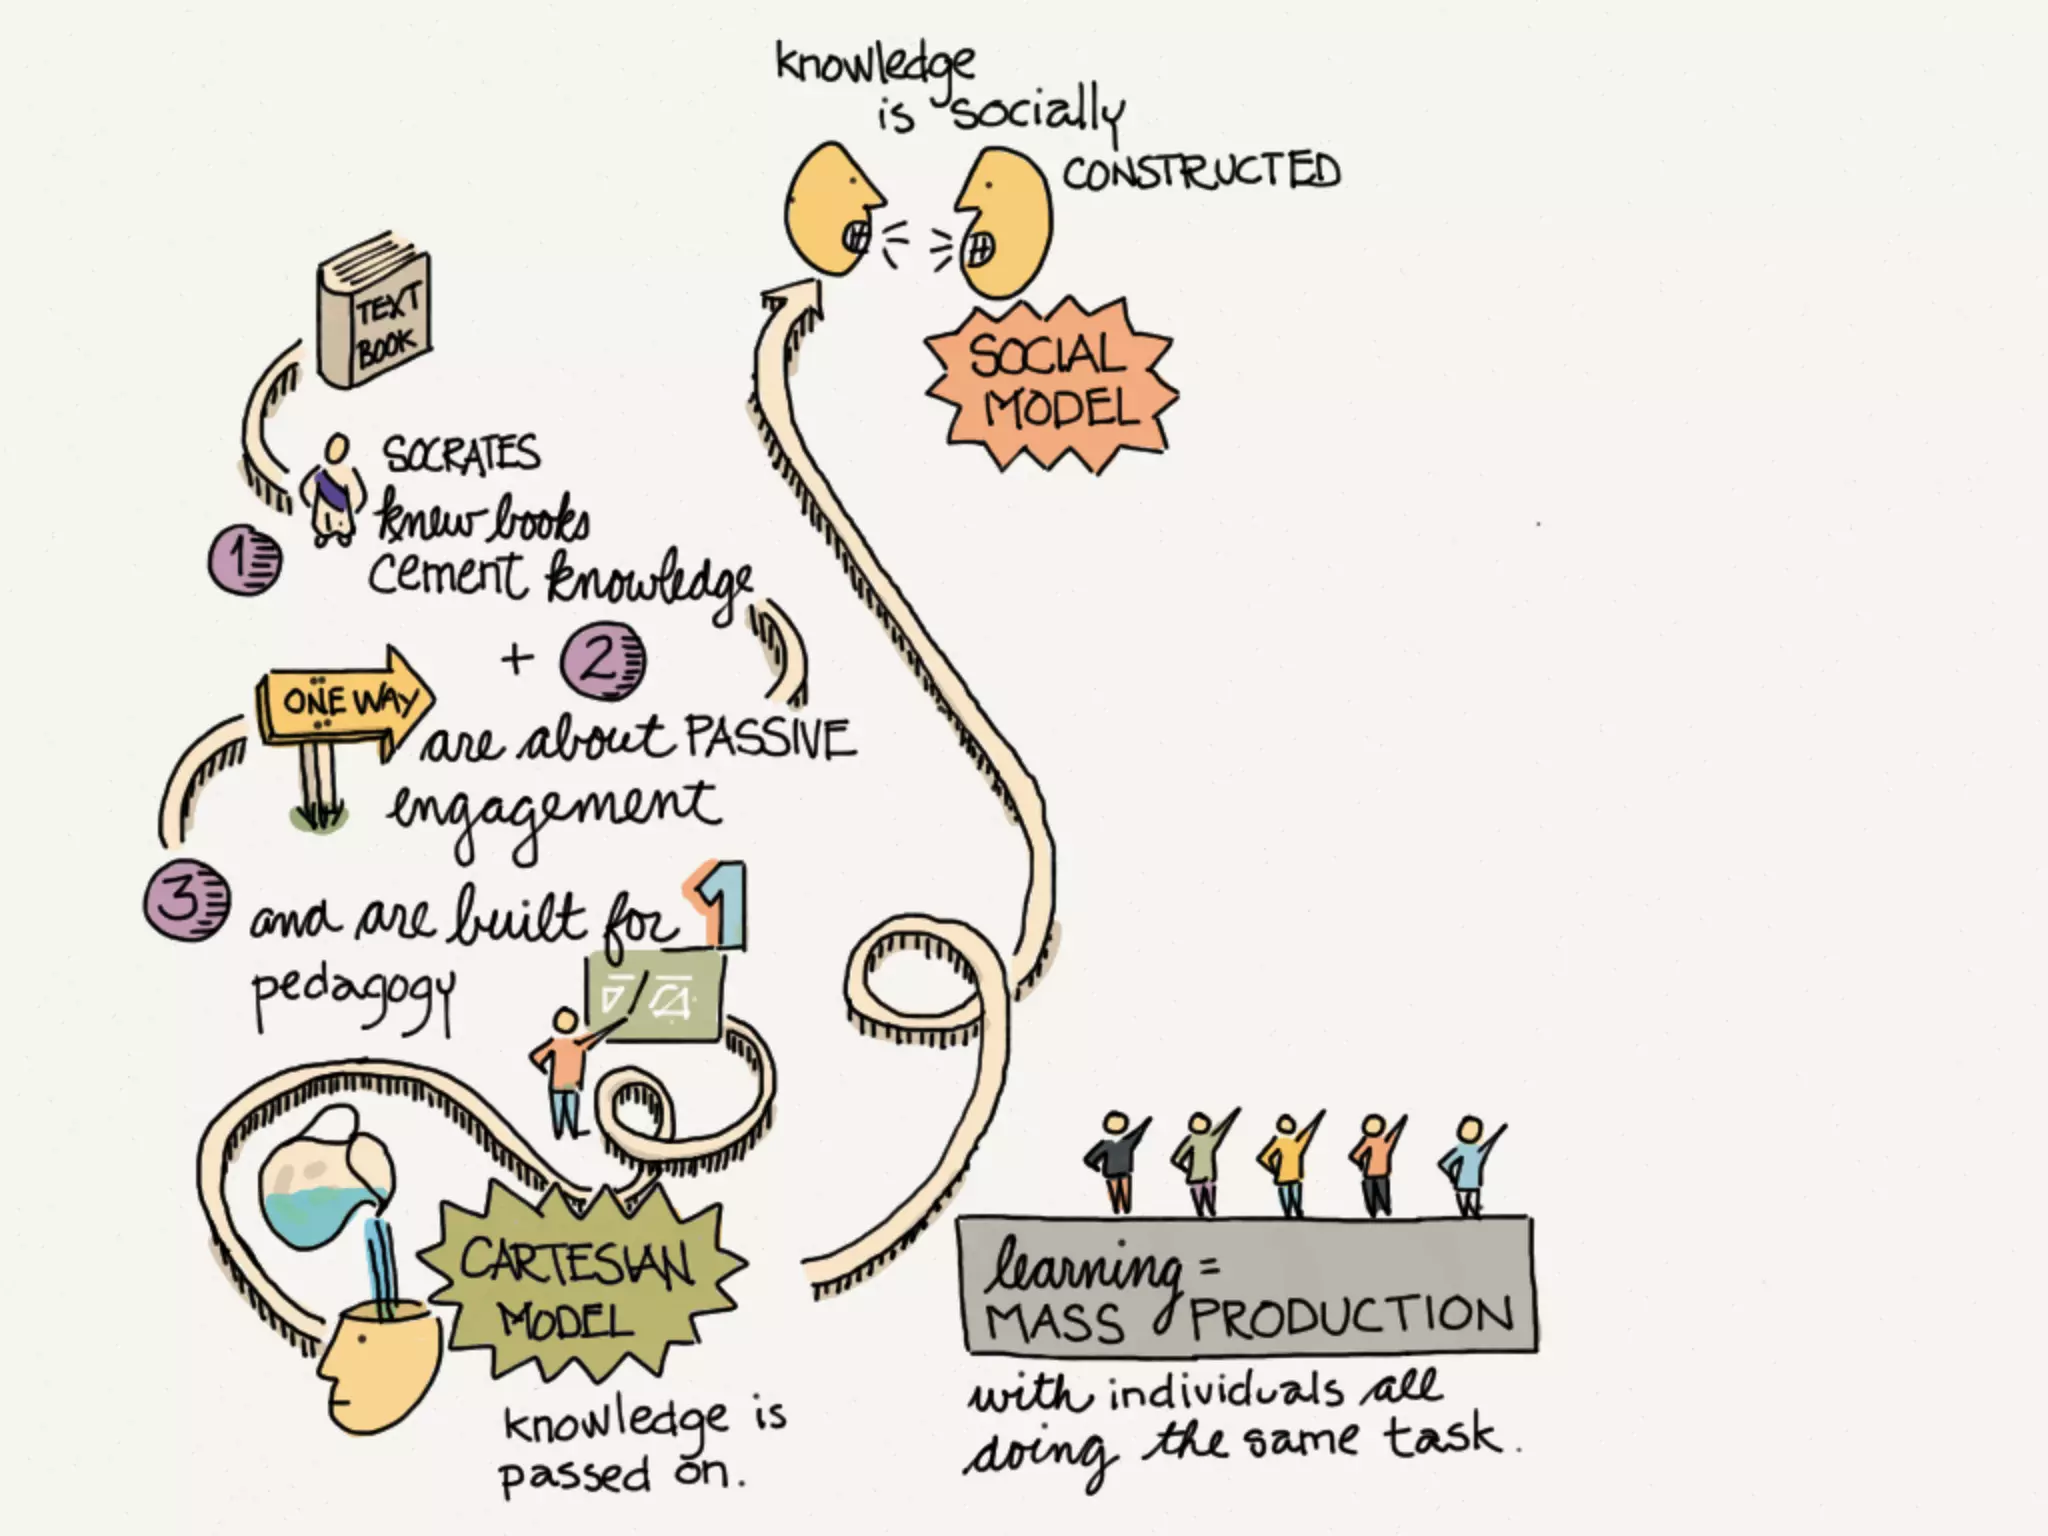 knowledge
is socially
CONSTRUCTED
SOCIAL
MODEL
TEXT
BOOK
SOCRATES
knew books
cement knowledge
1
+ 2
ONE WAY
are about PASSIVE
engagement
3
and are built for 1
pedagogy
CARTESIAN
MODEL
knowledge is
passed on.
learning =
MASS PRODUCTION
with individuals all
doing the same task.